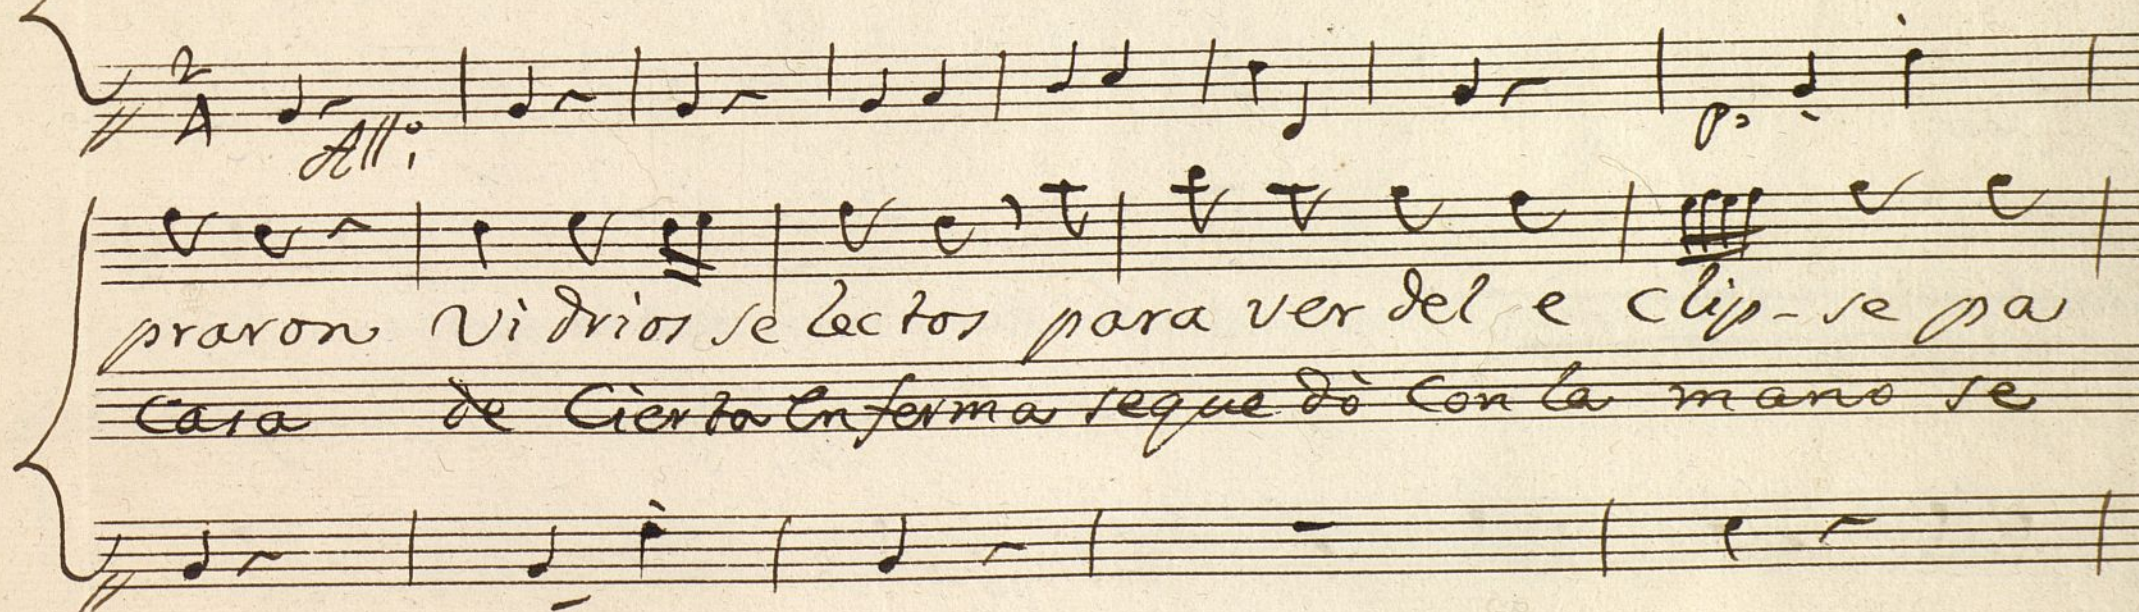 2
4
All:
p:
praron vi drios se lectos para ver del e clip-se pa
casa de cierta enferma se que dò con la mano se